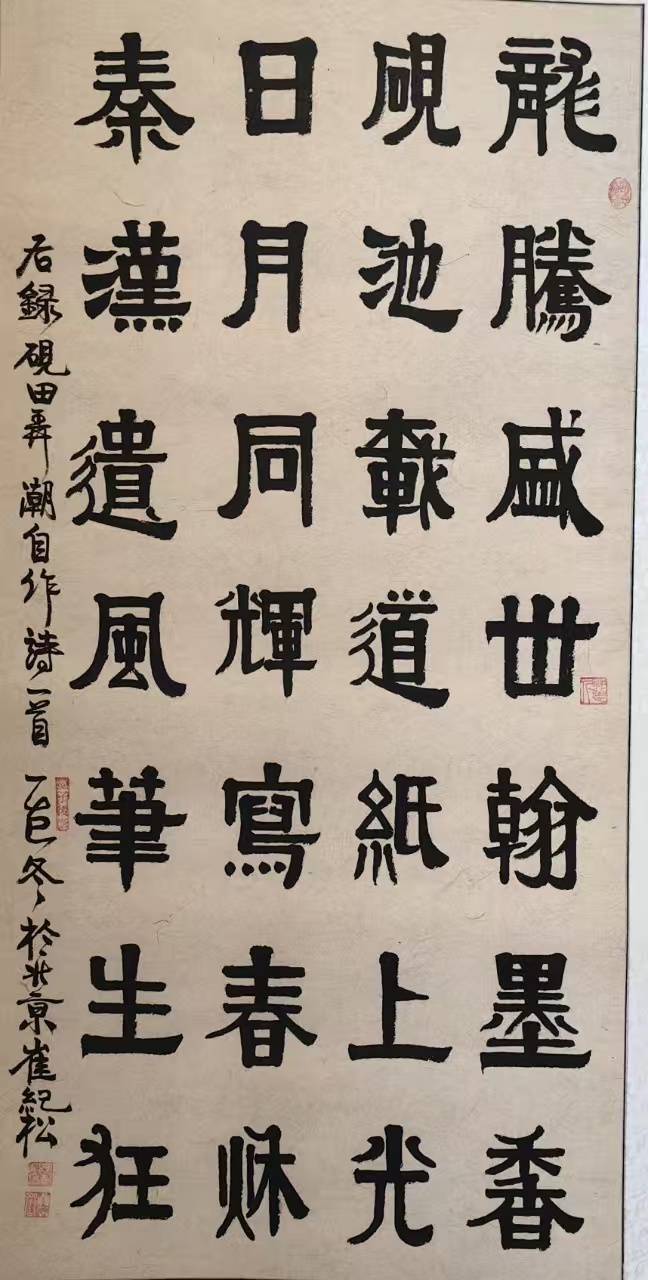 龍騰盛世翰墨香
硯池載道紙上光
日月同輝寫春秋
秦漢遺風筆生狂
右錄硯田弄潮自作詩一首 乙巳冬於北京崔紀松